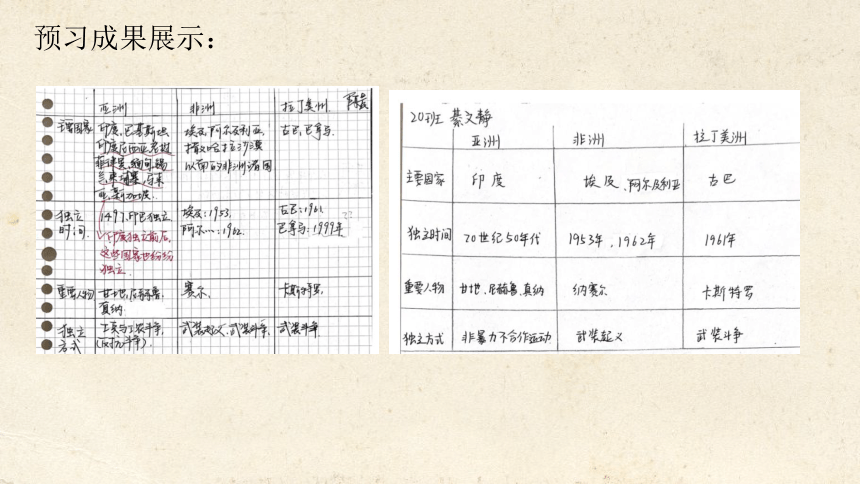 预习成果展示：
亚洲 非洲 拉丁美洲
主要国家 印度、巴基斯坦 埃及、阿尔及利亚、 古巴、巴拿马.
印度尼西亚 撒哈拉沙漠
菲律宾、缅甸、锡 以南的非洲诸国
独立 1497,印巴独立 埃及:1953. 古巴:1961
时间. 阿尔…:1962. 巴拿马:1999年 ??
印度独立前后,
这些国家也纷纷
独立.
重要人物 甘地、尼赫鲁, 赛尔, 卡斯特罗,
真纳.
独立 武装起义、武装斗争, 武装斗争
方式
20班 綦文静
亚洲 非洲 拉丁美洲
主要国家 印度 埃及、阿尔及利亚 古巴
独立时间 20世纪50年代 1953年、1962年 1961年
重要人物 甘地、尼赫鲁、真纳 纳赛尔 卡斯特罗
独立方式 非暴力不合作运动 武装起义 武装斗争